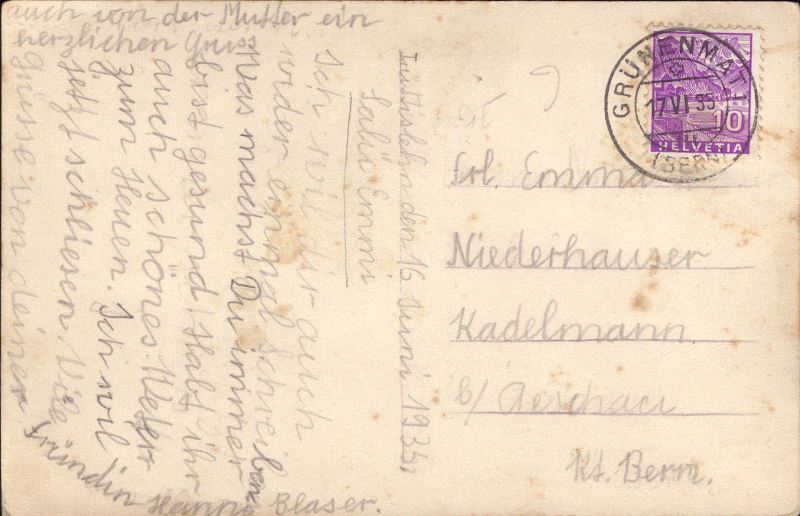 auch von der Mutter ein
herzlichen Gruss
den 16. Juni 1935.
Salü Emmi
Ich wil dir auch
wider einmal schreiben
Was machst Du immer
bist gesund! Habt ihr
auch schönes Wetter
zum Heuen. Ich wil
jetzt schliesen. Vile
Grüsse von deiner
Fründin
Hanni Blaser.
GRÜNENMATT
17 VI 35
(BERN)
10
HELVETIA
Frl. Emma
Niederhauser
Kadelmann.
b/ Aeschau
Kt. Bern.